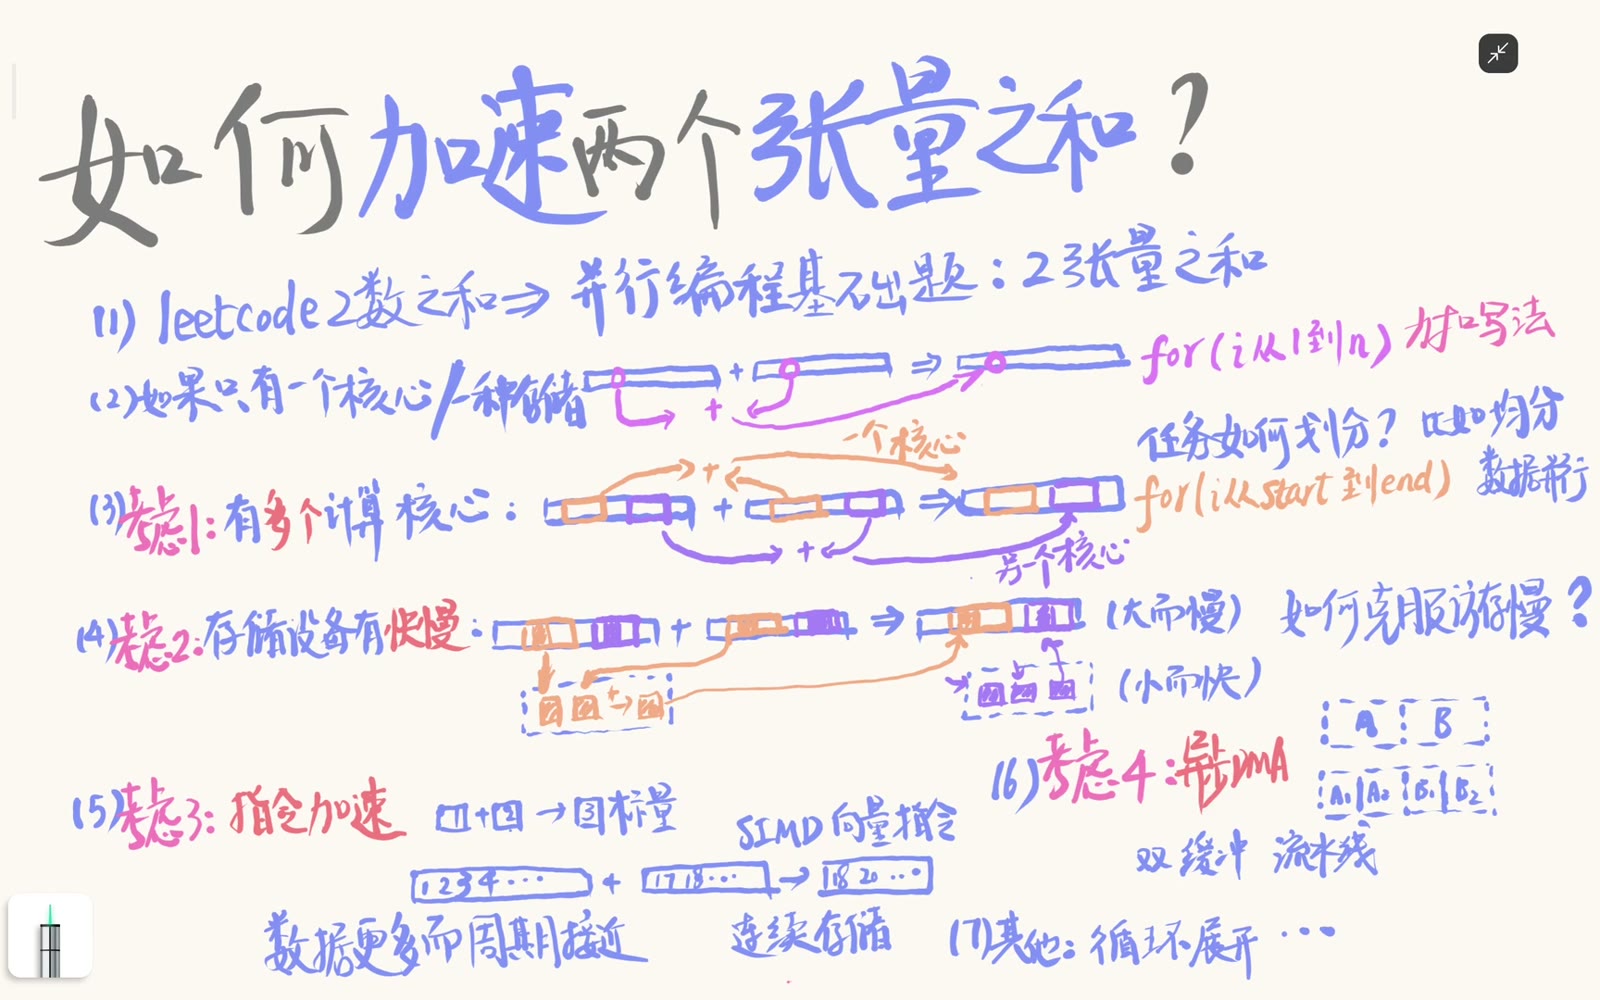 如何加速两个张量之和?
(1) leetcode 2数之和⇒ 并行编程基础题:2张量之和
(2)如果只有一个核心/一种存储 + ⇒ for(i从1到n)
+
一个核心
任务如何划分?比如均分
(3)考虑1:有多个计算核心: + ⇒ for(i从start到end) 数据并行
+
+
另一个核心
(4)考虑2:存储设备有快慢: + ⇒ (大而慢) 如何克服访存慢?
+→ (小而快)
(5)考虑3:指令加速 1+2→3标量
SIMD向量指令
1 2 3 4 ··· + 17 18 ··· → 18 20 ···
数据更多而周期接近 连续存储
(6)考虑4:异步DMA
A B
A1 A2 B1 B2
双缓冲 流水线
(7)其他:循环展开 ···